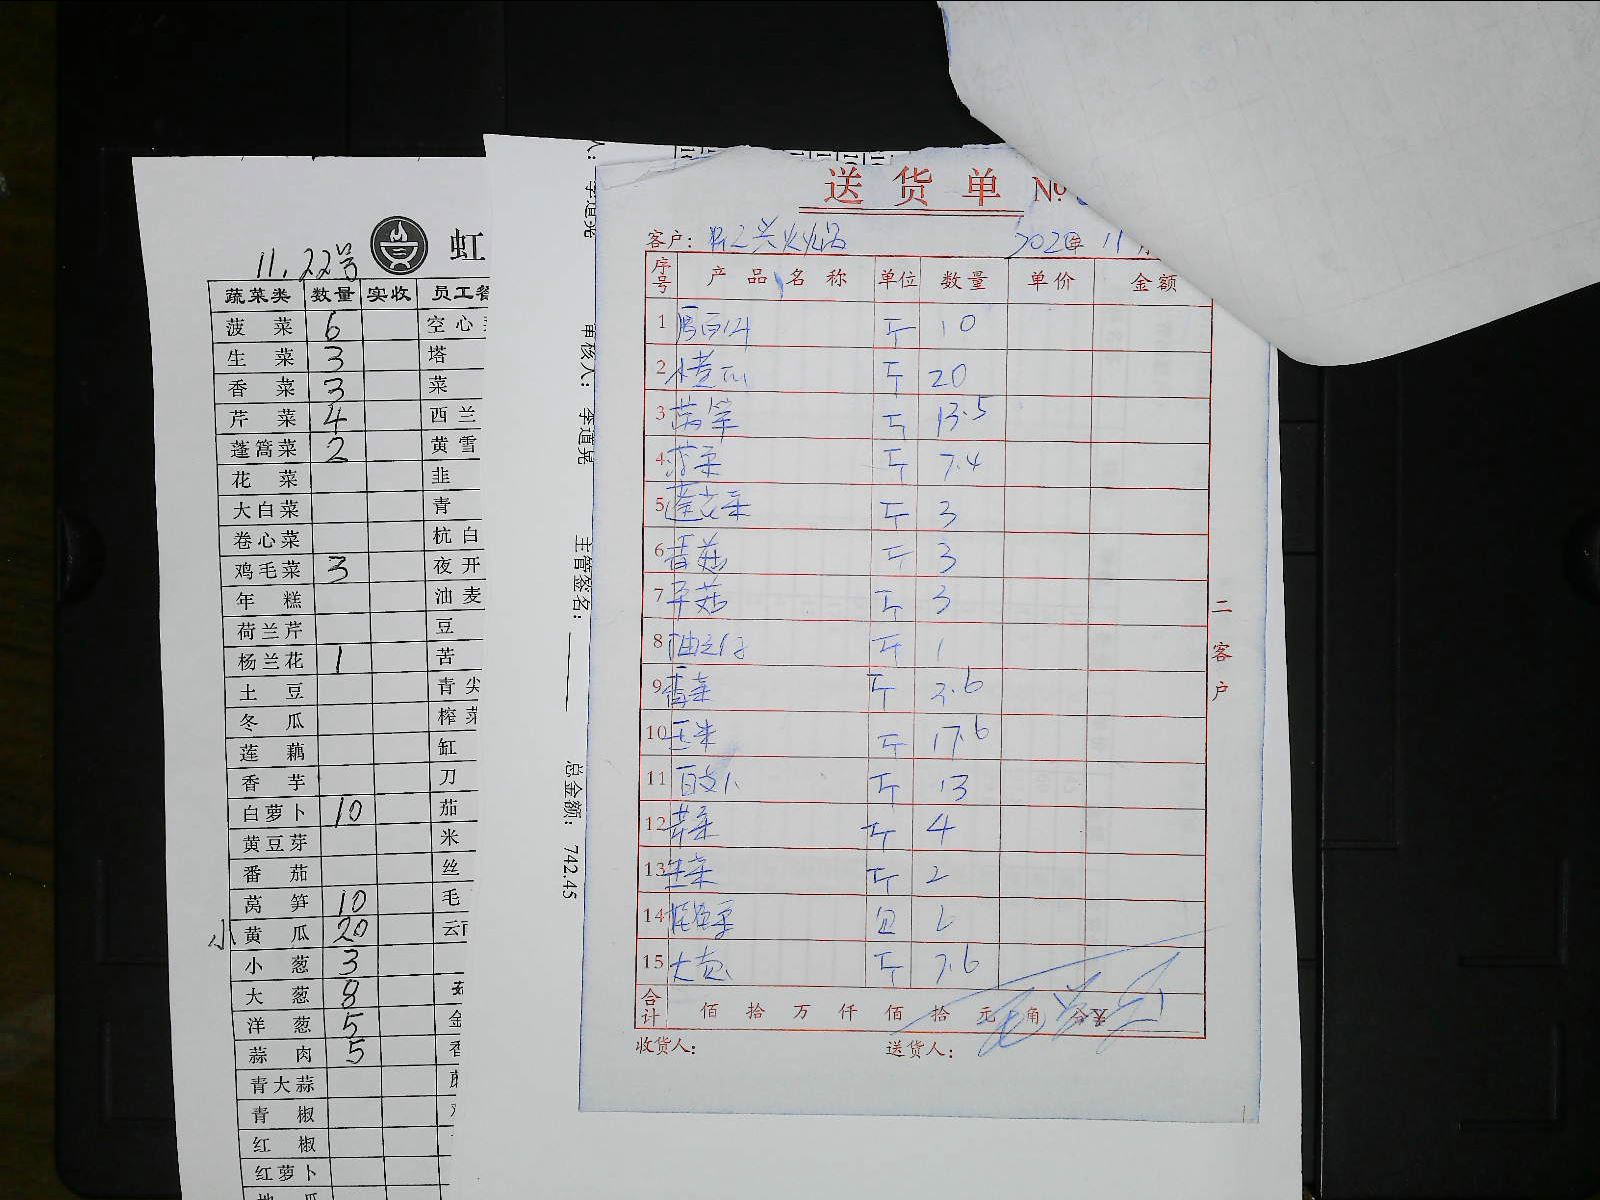 11.22号
虹
蔬菜类 数量 实收 员工餐
菠菜 6 空心
生菜 3 塔
香菜 3 菜
芹菜 4 西兰
蓬蒿菜 2 黄雪
花菜 韭
大白菜 青
卷心菜 杭白
鸡毛菜 3 夜开
年糕 油麦
荷兰芹 豆
杨兰花 1 苦
土豆 青尖
冬瓜 榨菜
莲藕 缸
香芋 刀
白萝卜 10 茄
黄豆芽 米
番茄 丝
莴笋 10 毛
小黄瓜 20 云
小葱 3
大葱 8
洋葱 5 金
蒜肉 5 香
青大蒜
青椒
红椒
红萝卜
地瓜
李道晃
审核人: 李道晃
主管签名:
总金额: 742.45
送货单 №
客户: 火锅 2020年 11月
序号 产品名称 单位 数量 单价 金额
1 斤 10
2 小黄瓜 斤 20
3 莴笋 斤 13.5
4 菠菜 斤 7.4
5 斤 3
6 香菇 斤 3
7 平菇 斤 3
8 斤 1
9 香菜 斤
10 玉米 斤 17.6
11 斤 13
12 芹菜 斤 4
13 生菜 斤 2
14
15 大葱 斤
合计 佰 拾 万 仟 佰 拾 元 角 分
收货人: 送货人:
二客户